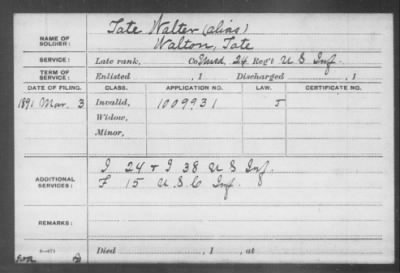 Tate Walter (alias)
NAME OF SOLDIER: Walton, Tate
SERVICE: Late rank, Co. Unas'd, 24 Reg't U S Inf.
TERM OF SERVICE: Enlisted , 1 Discharged , 1
DATE OF FILING. CLASS. APPLICATION NO. LAW. CERTIFICATE NO.
1891 Mar. 3 Invalid, 1009931 J
Widow,
Minor,
I 24 + I 38 U S Inf.
ADDITIONAL SERVICES: F 15 U.S.C Inf.
REMARKS:
Died , 1 , at